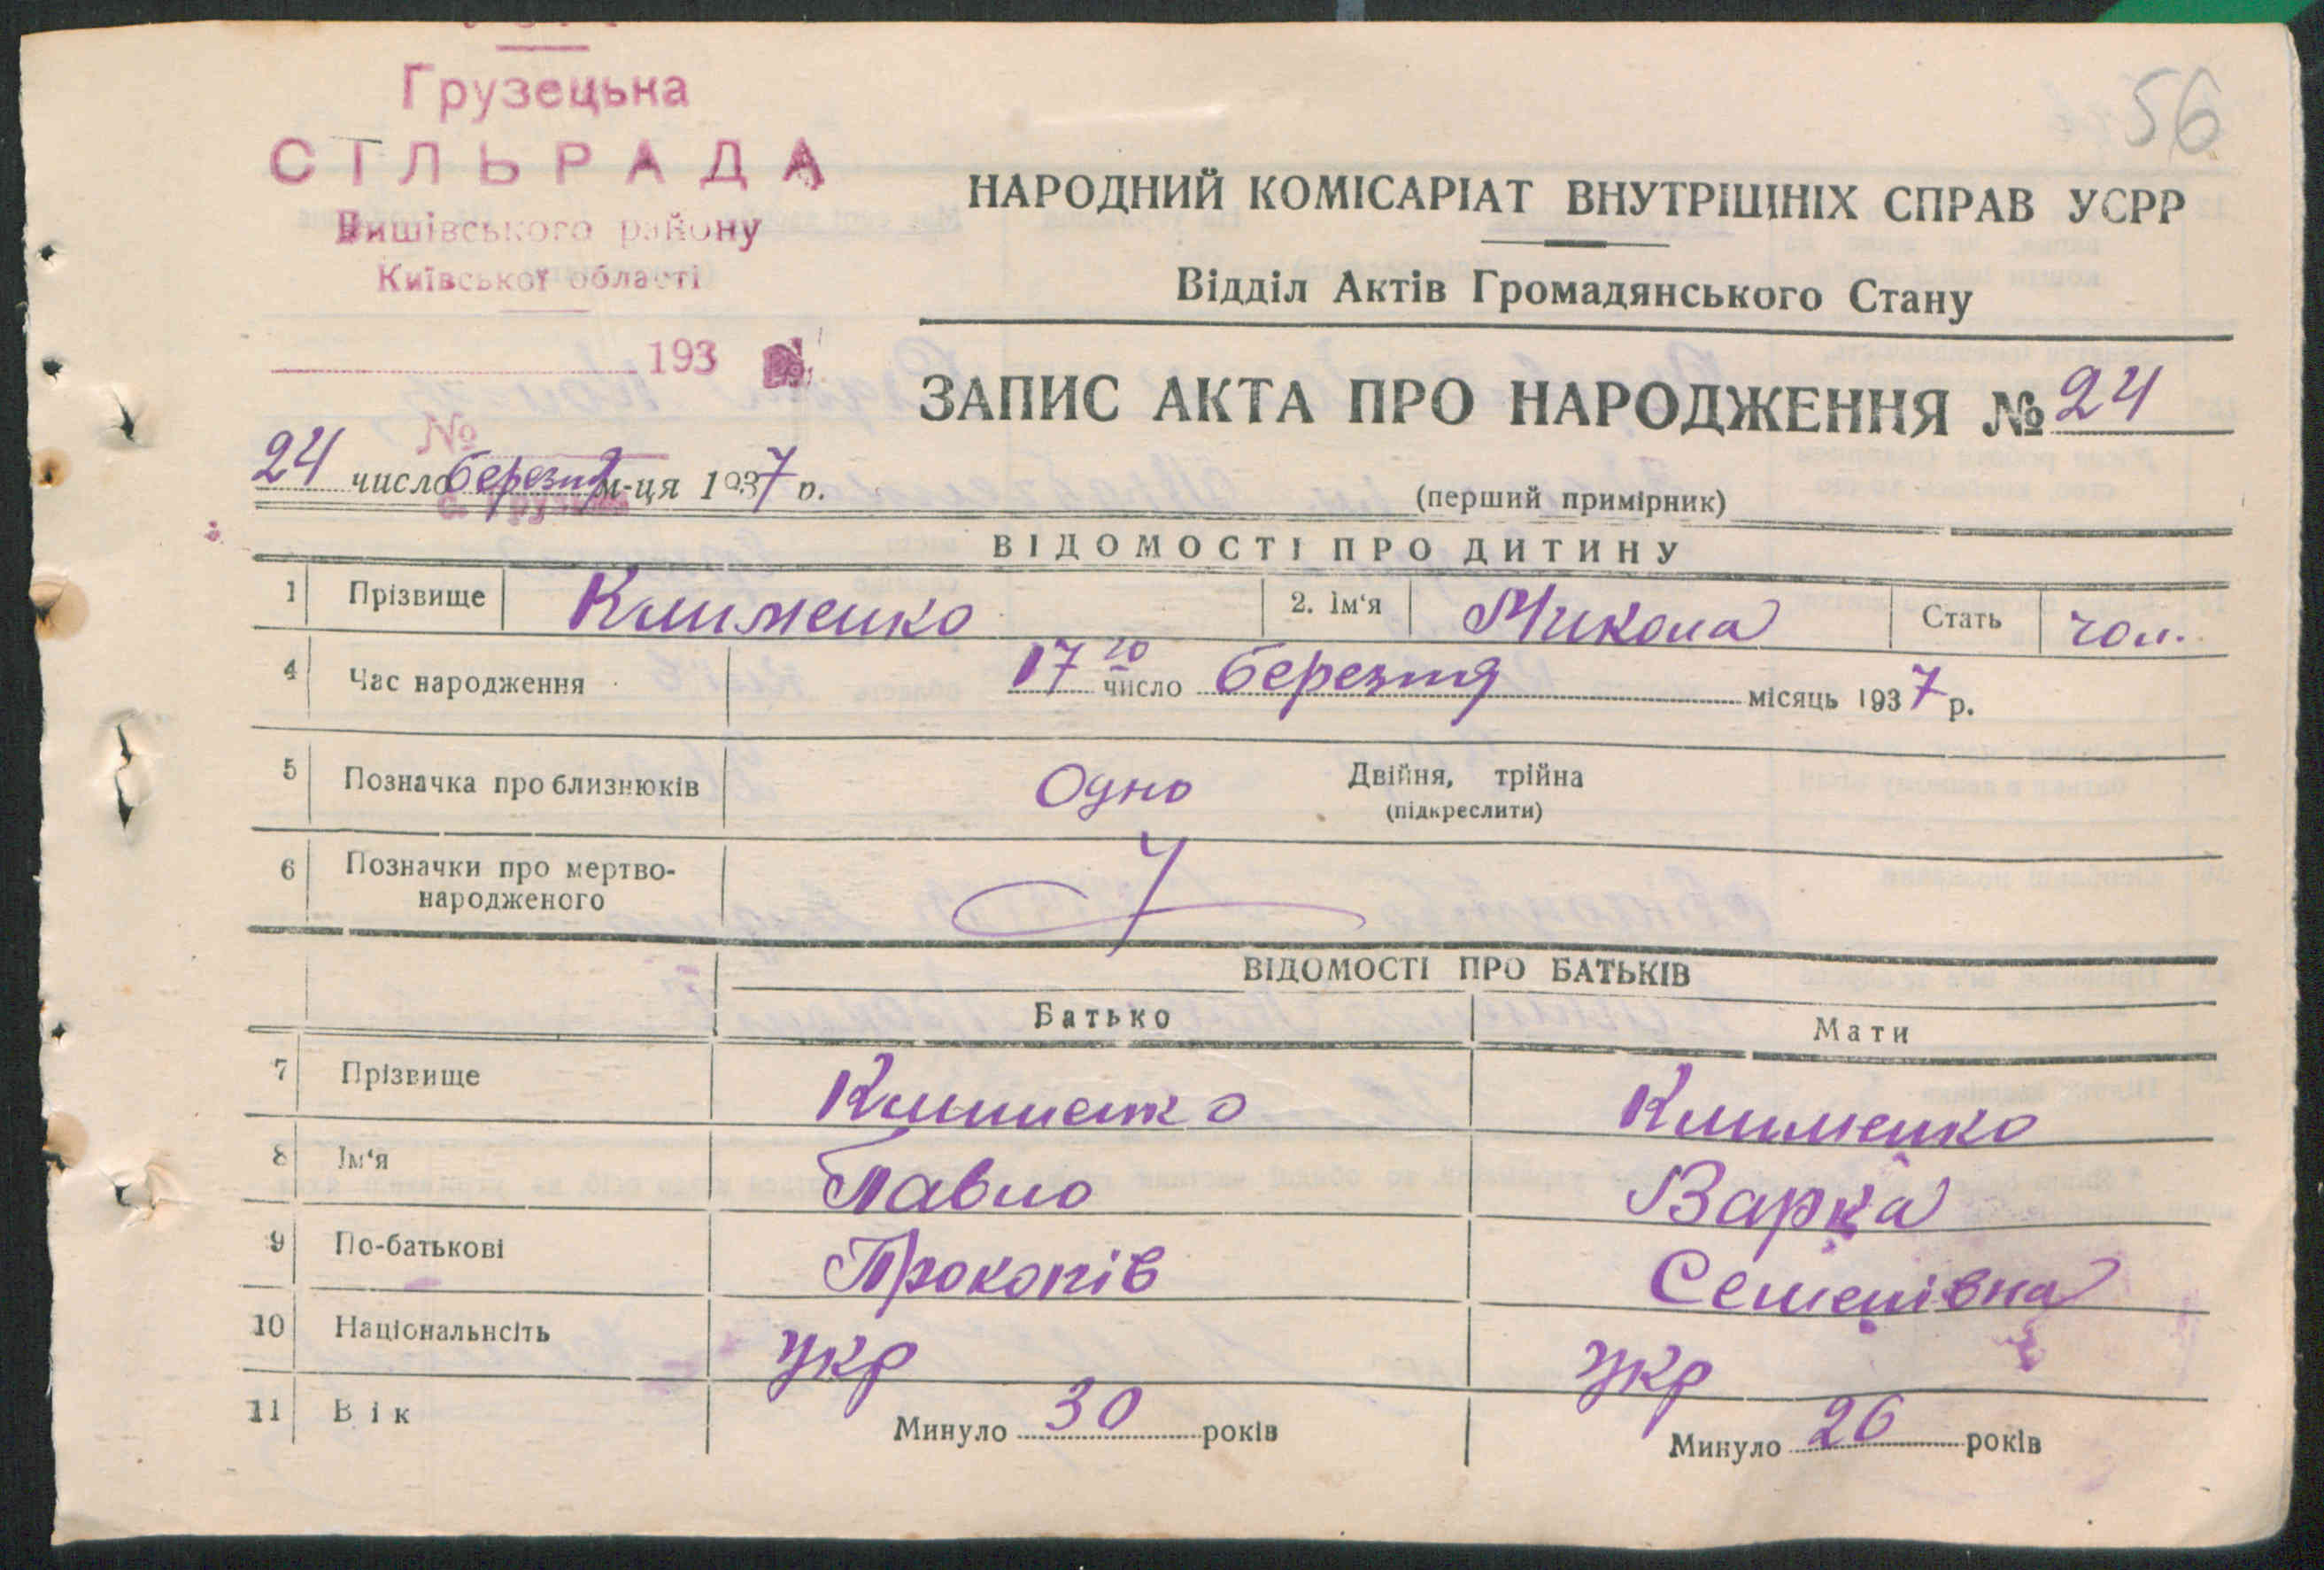 Грузецька
СІЛЬРАДА
Вишівського району
Київської області
193
№
56
НАРОДНИЙ КОМІСАРІАТ ВНУТРІШНІХ СПРАВ УСРР
Відділ Актів Громадянського Стану
ЗАПИС АКТА ПРО НАРОДЖЕННЯ № 24
24 число березня м-ця 1937 р.
(перший примірник)
ВІДОМОСТІ ПРО ДИТИНУ
1 Прізвище Клименко 2. Ім‘я Микола Стать чол.
4 Час народження 17 го число березня місяць 1937 р.
5 Позначка про близнюків Одно Двійня, трійна
(підкреслити)
6 Позначки про мертво-
народженого
ВІДОМОСТІ ПРО БАТЬКІВ
Батько Мати
7 Прізвище Клименко Клименко
8 Ім‘я Павло Варка
9 По-батькові Прокопів Семенівна
10 Національнсіть Укр Укр
11 Вік Минуло 30 років Минуло 26 років